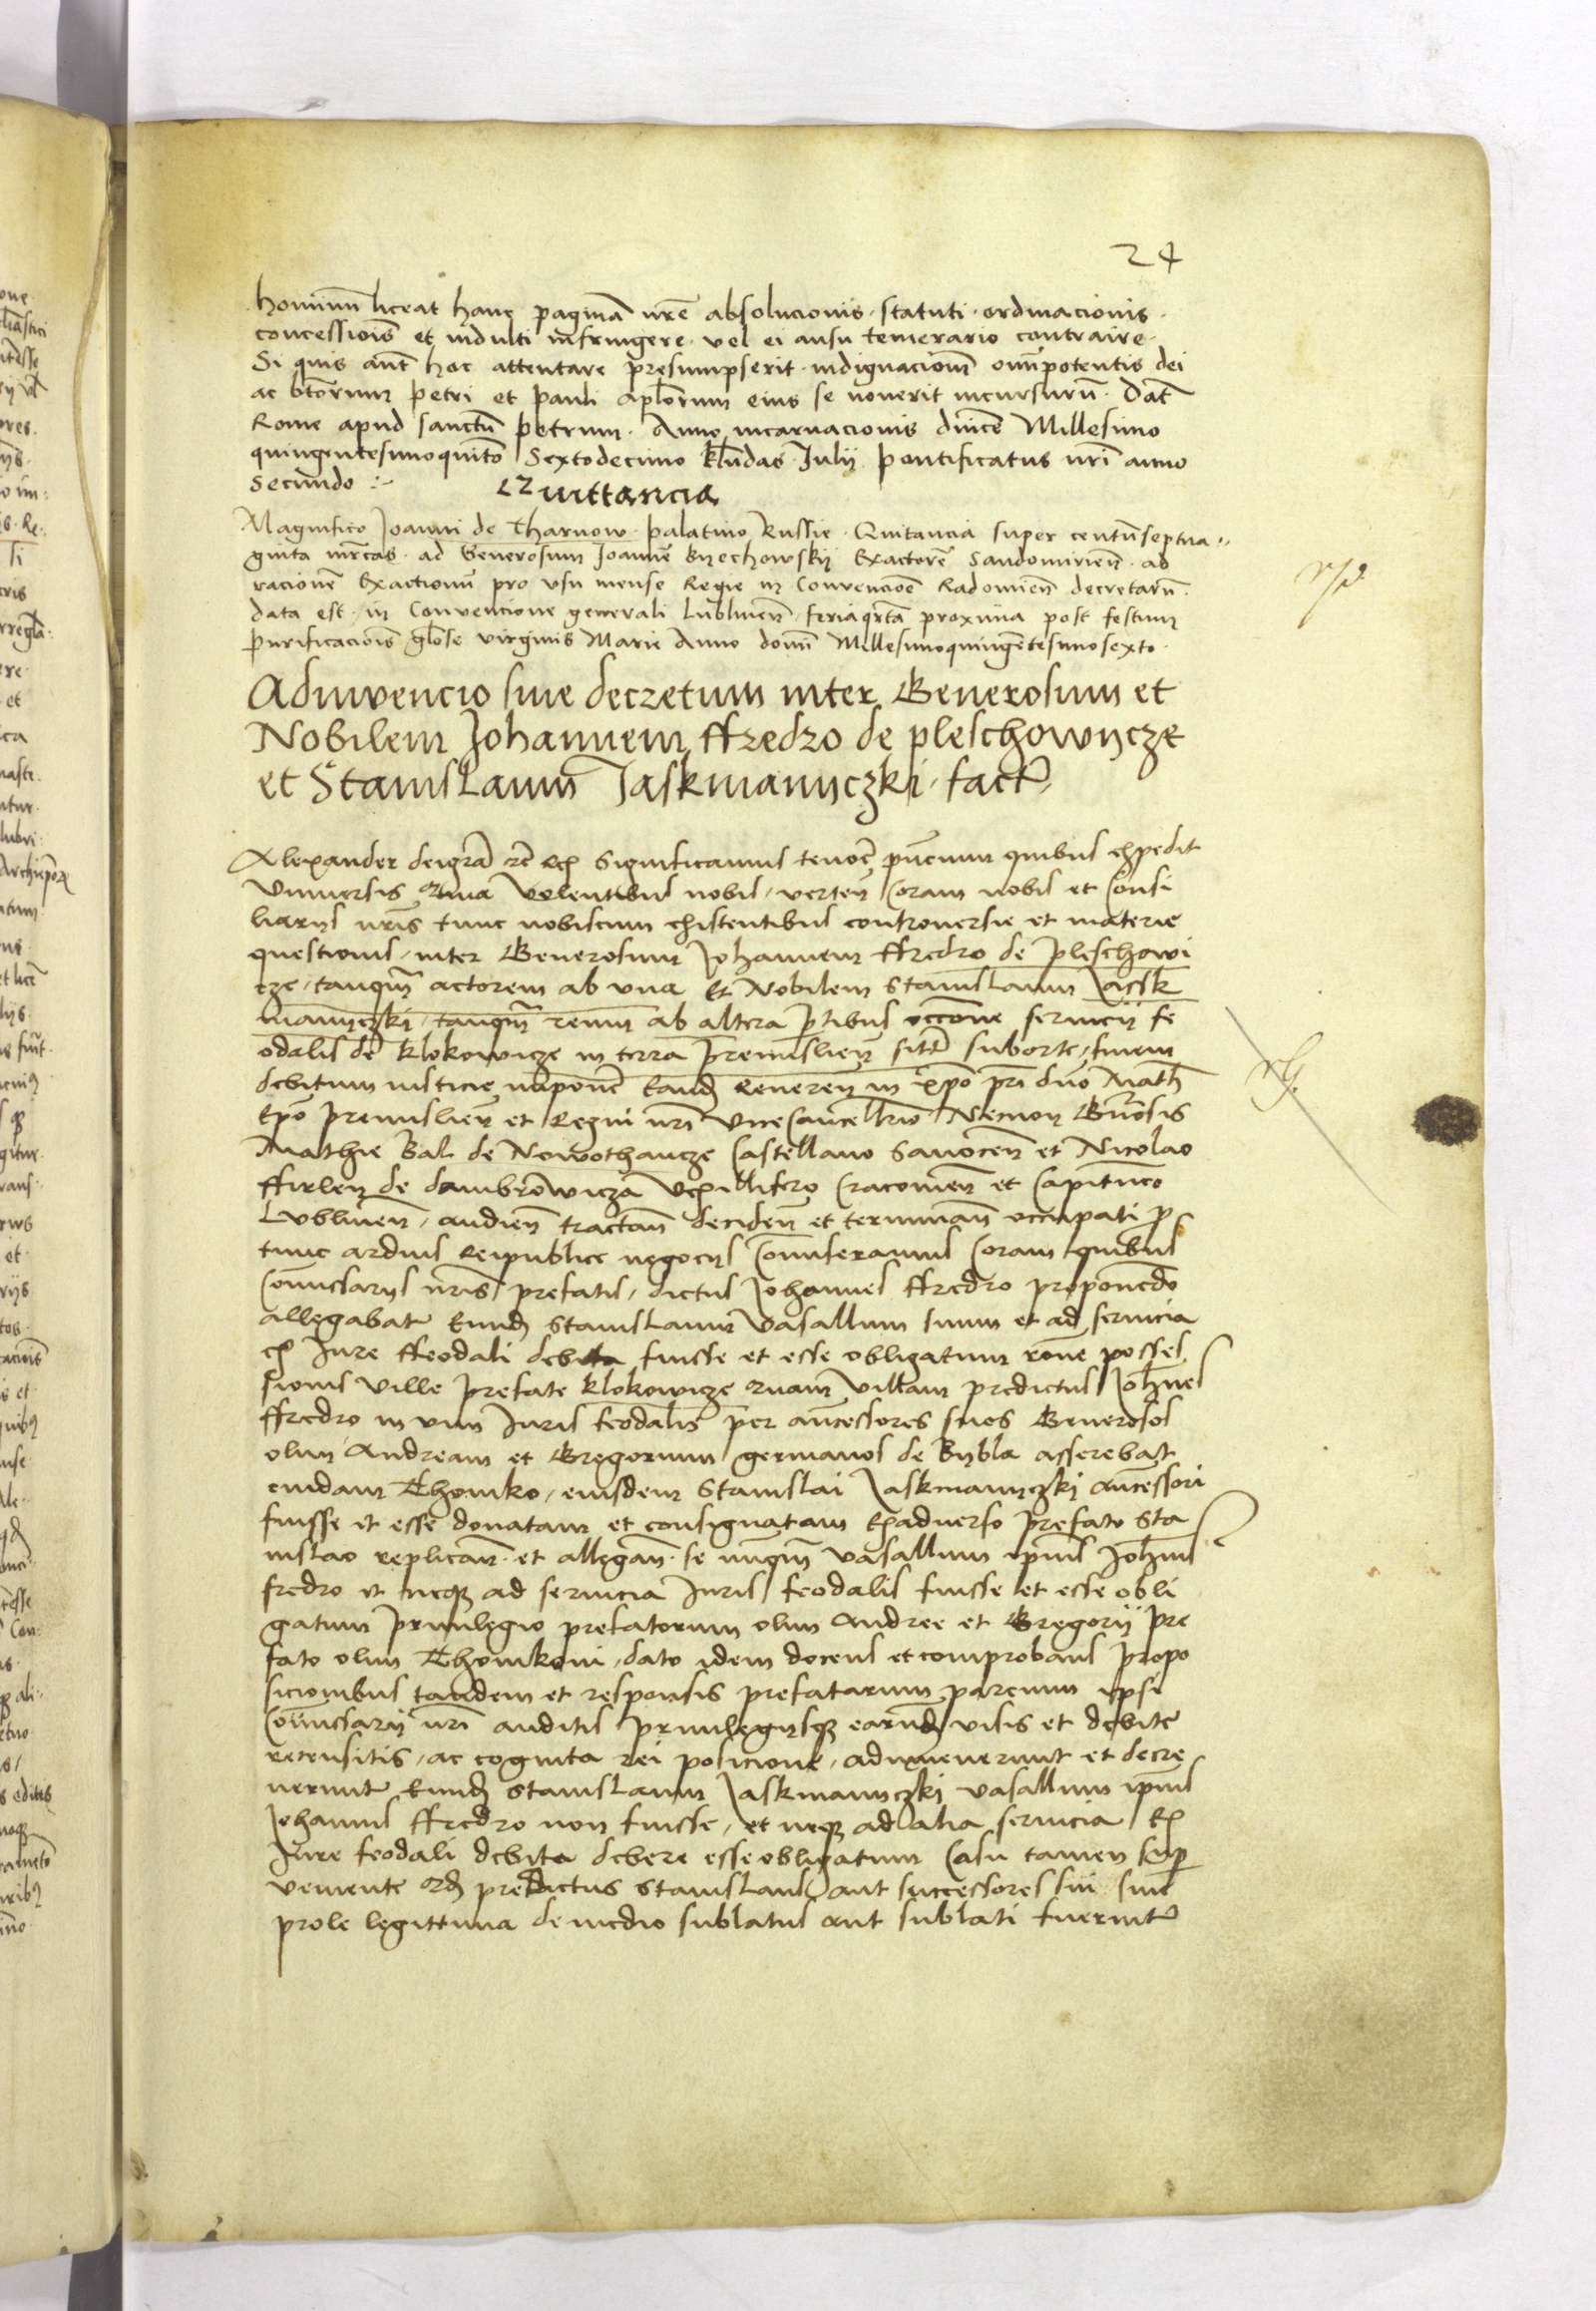 24
hominum liceat hanc paginā nr̄e absolucionis · statuti · ordinacionis ·
concessiois̄ et indulti infringere · vel ei ausu temerario contraire ·
Si quis aut̄ hoc attentare presumpserit · indignacionē omīpotentis dei
ac btōrum petri et pauli aplōrum eius se noverit incursurū · Dat̄
Rome apud sanctū petrum · Anno incarnacionis dnīce Millesimo
quingentesimoquīto Sextodecimo klēndas Julij pontificatus nrī anno
secundo :~
Quittancia
Magnifico Joanni de Tharnow · palatino Russie · Quitancia super centūseptua
ginta mr̄cas · ad Generosum Joannē Knechowskij Exactorē Sandomirien̄ · ad
racionē Exactionū pro vsu mense Regie in Convencioē Radomien̄ decretarū ·
data est · in Convencione generali Lublinen̄ feria qr̄ta proxima post festum
Purificaciois̄ glōse virginis Marie Anno domī Millesimoquingētesimosexto ·
Adinvencio sive decretum inter Generosum et
Nobilem Johannem ffredro de pleschowycze
et Stanislaum Jaskmanyczki · fact̄
Alexander dei grā rc̄ Significamus tenorē pn̄cium quibus expedit
Vniversis Quia volentibus nobis / verten̄ Coram nobis et Consi
liarijs nrīs tunc nobiscum existentibus controversie et materie
questionis / inter Generosum Johannem ffredro de Pleschowi
cze / tanqm̄ actorem ab vna Et Nobilem Stanislaum Jassk
manyczkij / tanqm̄ reum ab altera ptibus occōne servicij fe
odalis de Klokowicze in terra Premislien̄ sit̄ suborte / finem
debitum iusticie imponē Eand Reveren̄ in xpō prī dnō Math
Epō Premislien̄ et Regni nrī Vicecancellrio Necnon Gnōsis
Mathie Bal de Nowothancze Castellano Sanocen̄ et Nicolao
ffirleij de dambrowicza Vexillifero Cracovien̄ et Capitneo
Lublinen̄ / audien̄ tractan̄ deciden̄ et terminan̄ occupati p
tunc arduis Reipublice negocijs Comiseramus Coram quibus
Comissarijs nrīs prefatis / dictus Johannes ffredro proponēdo
allegabat Eund Stanislaum Vasallum suum et ad servicia
ex Jure ffeodali debita fuisse et esse obligatum rōne posses
sionis Ville prefate Klokowicze Quam villam predictus Johnes
ffredro in vim Juris feodalis per ancessores suos Generosos
olim Andream et Gregorium germanos de Bybla asserebat
cuidam Thomko / eiusdem Stanislai Jaskmanyczkij ancessori
fuisse et esse donatam et consignatam Exadverso Prefato Sta
nislao replican̄ · et allegan̄ · se nunqm̄ vasallum ipius Johnis
fredro et neque ad servicia Juris feodalis fuisse et esse obli
gatum Privilegio prefatorum olim Andree et Gregorij pre
fato olim Thomkoni / dato idem docens et comprobans Propo
sicionibus tandem et responsis prefatarum parcium ipsi
Comissarij nrī auditis privilegijsque earund visis et debite
recensitis / ac cognita rei posicione / adinvenerunt et decre
verunt Eund Stanislaum Jaskmanyczkij vasallum ipius
Johannis ffredro non fuisse / et neque ad alia servicia Ex
Jure feodali debita debere esse obligatum Casu tamen sup
veniente Qd predictus Stanislaus aut successores sui sine
prole legittima de medio sublatus aut sublati fuerint